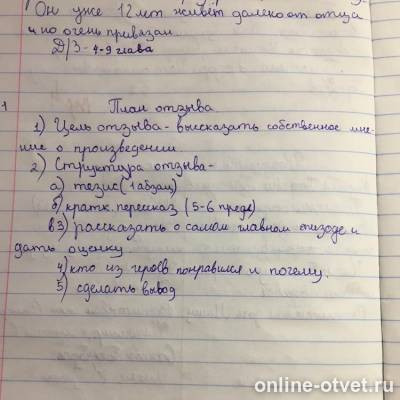 Он уже 12 лет живёт далеко от отца
и но очень привязан
Д/З - 4-9 глава
1
План отзыва
1) Цель отзыва - высказать собственное мне-
ние о произведении
2) Структура отзыва -
а) тезис (1 абзац)
б) кратк. пересказ (5-6 предл)
в3) рассказать о самом главном эпизоде и
дать оценку
4) кто из героев понравился и почему.
5) сделать вывод
online-otvet.ru